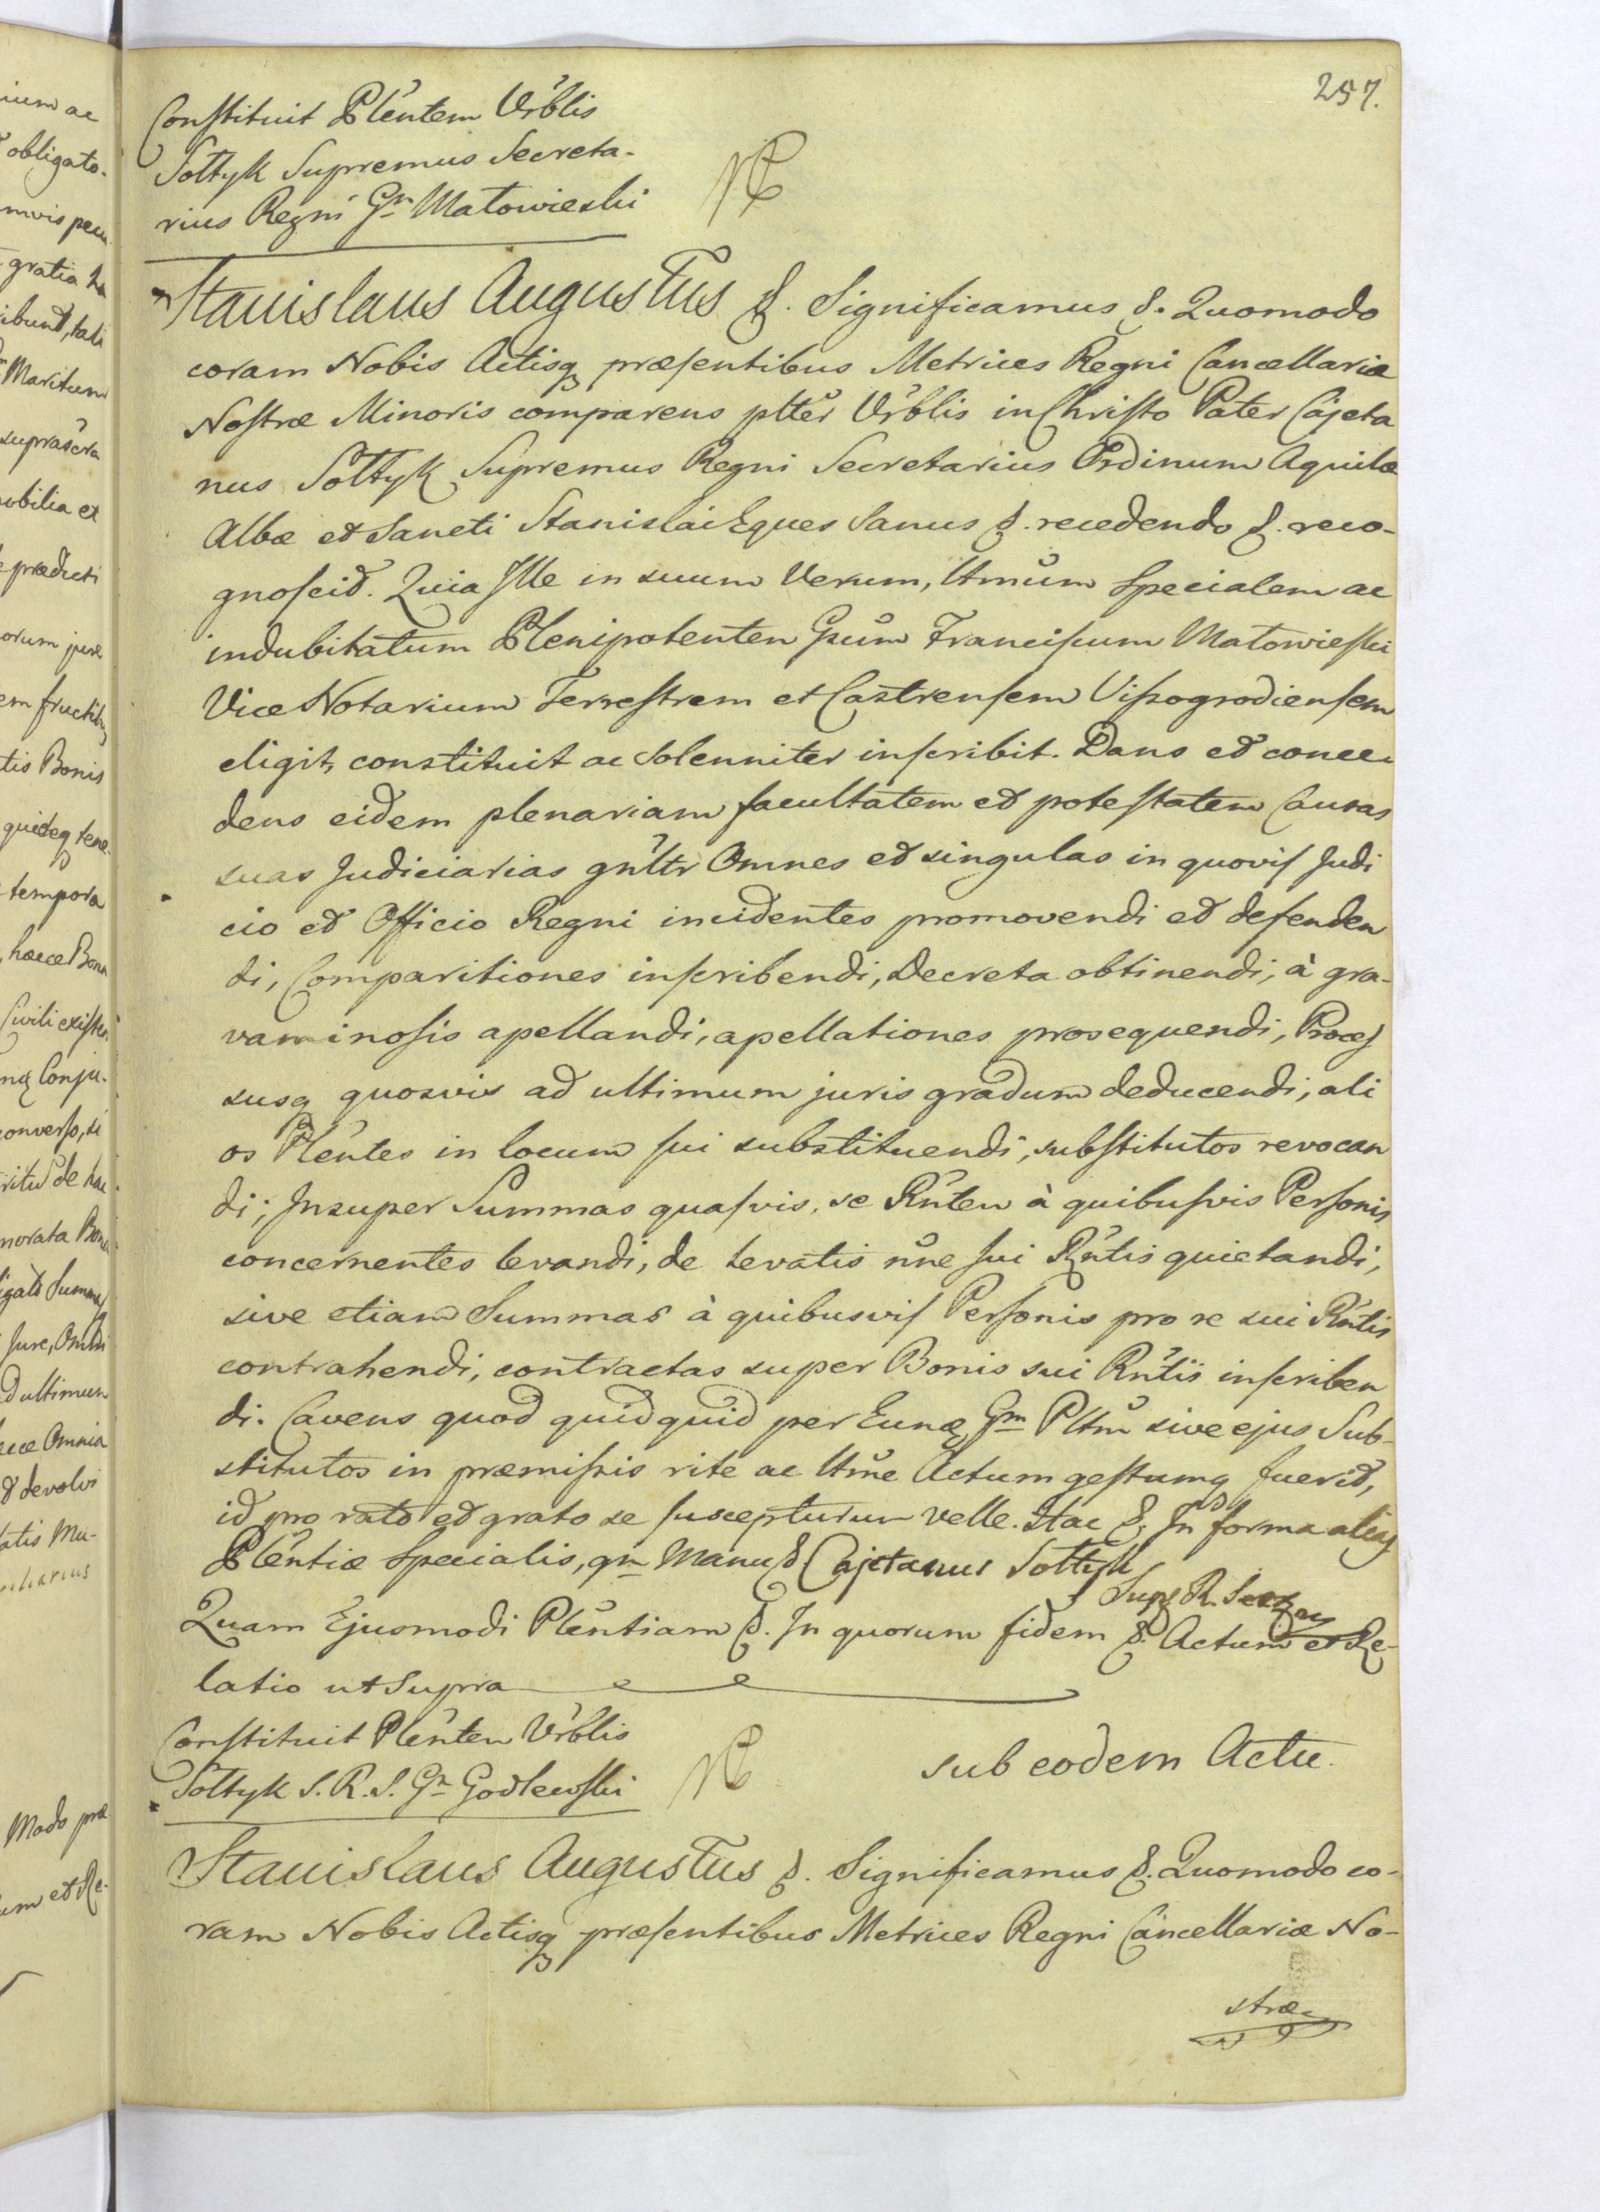 257.
Constituit Plentem Urblis
Sołtyk Supremus Secreta-
rius Regni Gm Matowieski
Stanislaus Augustus &. Significamus &. Quomodo
coram Nobis Actisq præsentibus Metrices Regni Cancellariæ
Nostræ Minoris comparens pltter Urblis in Christo Pater Cajeta
nus Sołtyk Supremus Regni Secretarius Ordinum Aquilæ
Albæ et Sancti Stanislai Eques Sanus &. recedendo &. reco-
gnoscit. Quia Ille in suum Verum, Ltmum Specialem ac
indubitatum Plenipotentem Gsum Franciscum Matowieski
Vice Notarium Terrestrem et Castrensem Vissogrodiensem
eligit, constituit ac Solenniter inscribit. Dans et conce-
dens eidem plenariam facultatem et potestatem Causas
suas Judiciarias gnltr Omnes et singulas in quovis Judi
cio et Officio Regni incidentes promovendi et defenden
di, Comparitiones inscribendi, Decreta obtinendi, à gra-
vaminosis apellandi, apellationes prosequendi, Proces
susq quosvis ad ultimum juris gradum deducendi, ali
os Plentes in locum sui substituendi, substitutos revocan
di; Insuper Summas quasvis, se Rnten à quibusvis Personis
concernentes levandi, de levatis nne sui Rntis quietandi,
sive etiam Summas à quibusvis Personis pro re sui Rntis
contrahendi, contractas super Bonis sui Rntis inscriben
di. Cavens quod quidquid per Eunq Gm Pltm sive ejus Sub-
stitutos in præmissis rite ac Ltme Actum gestumq fuerit,
id pro rato et grato se suscepturum velle. Hac &, In forma alias
Plentiæ Specialis, qn Manu & Cajetanus Sołtyk
Sup R. Secr
Quam Ejusmodi Plentiam &. In quorum fidem &. Actum et Re-
latio ut Supra
Constituit Plenten Urblis
Sołtyk S. R. S. Gn Godlewski
sub eodem Actu.
Stanislaus Augustus &. Significamus &. Quomodo co-
ram Nobis Actisq præsentibus Metrices Regni Cancellariæ No-
stræ